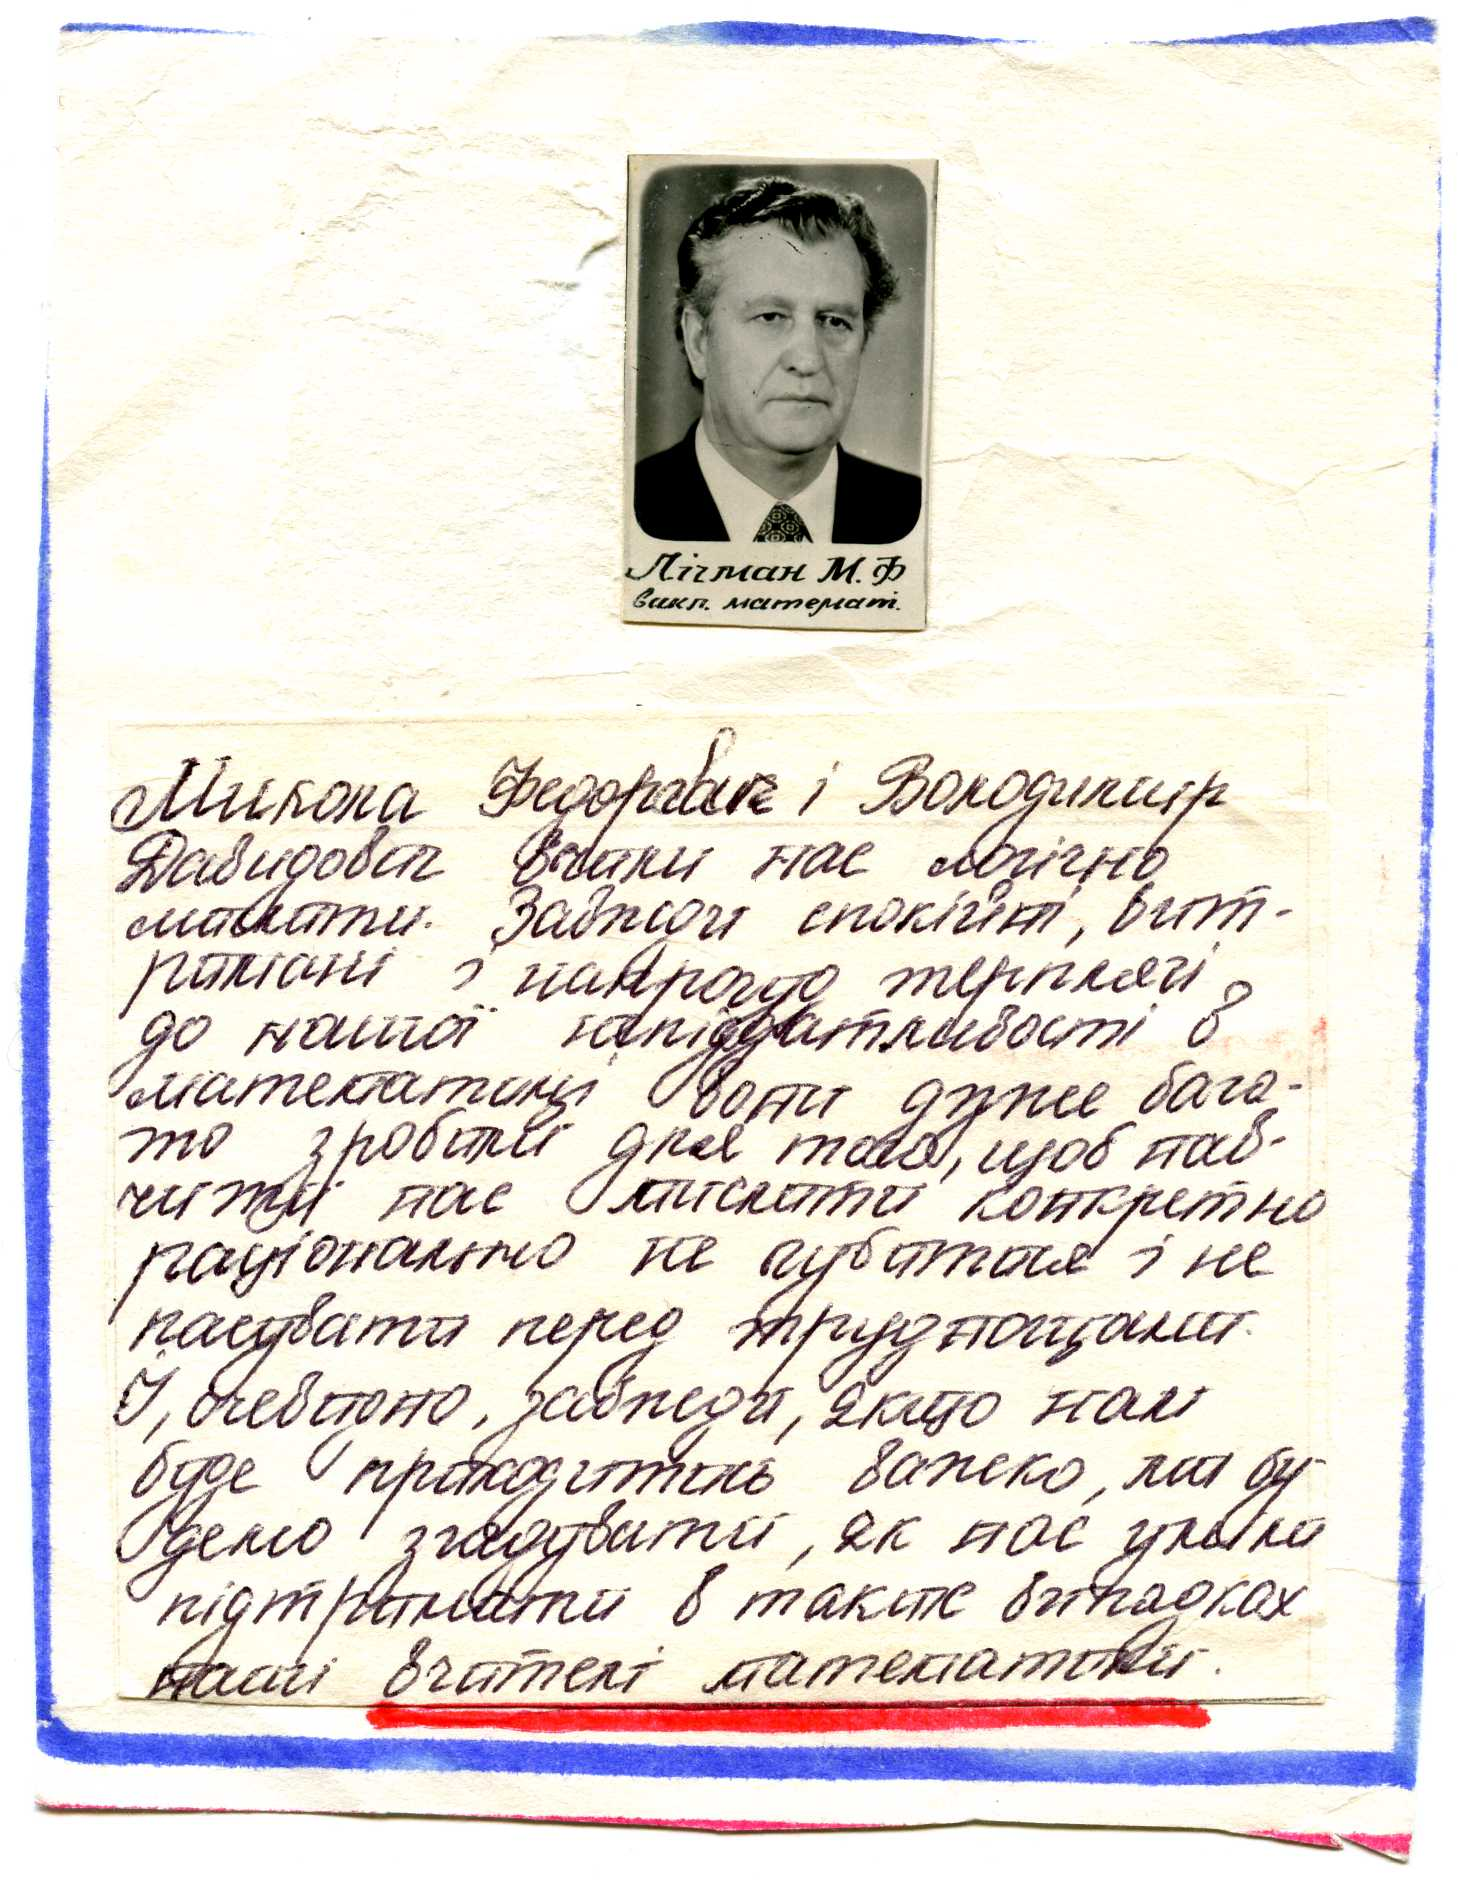 Лічман М.Ф
викл. математ.
Микола Федорович і Володимир
Давидович вчили нас логічно
мислити. Завжди спокійні, вит-
римані і напрочуд терплячі
до нашої непіддатливості в
математиці вони дуже бага-
то зробили для того, щоб нав-
чити нас мислити конкретно
раціонально не губитися і не
пасувати перед труднощами.
І, очевидно, завжди, якщо нам
буде приходитись важко, ми бу-
демо згадувати, як нас уміли
підтримати в таких випадках
наші вчителі математики.